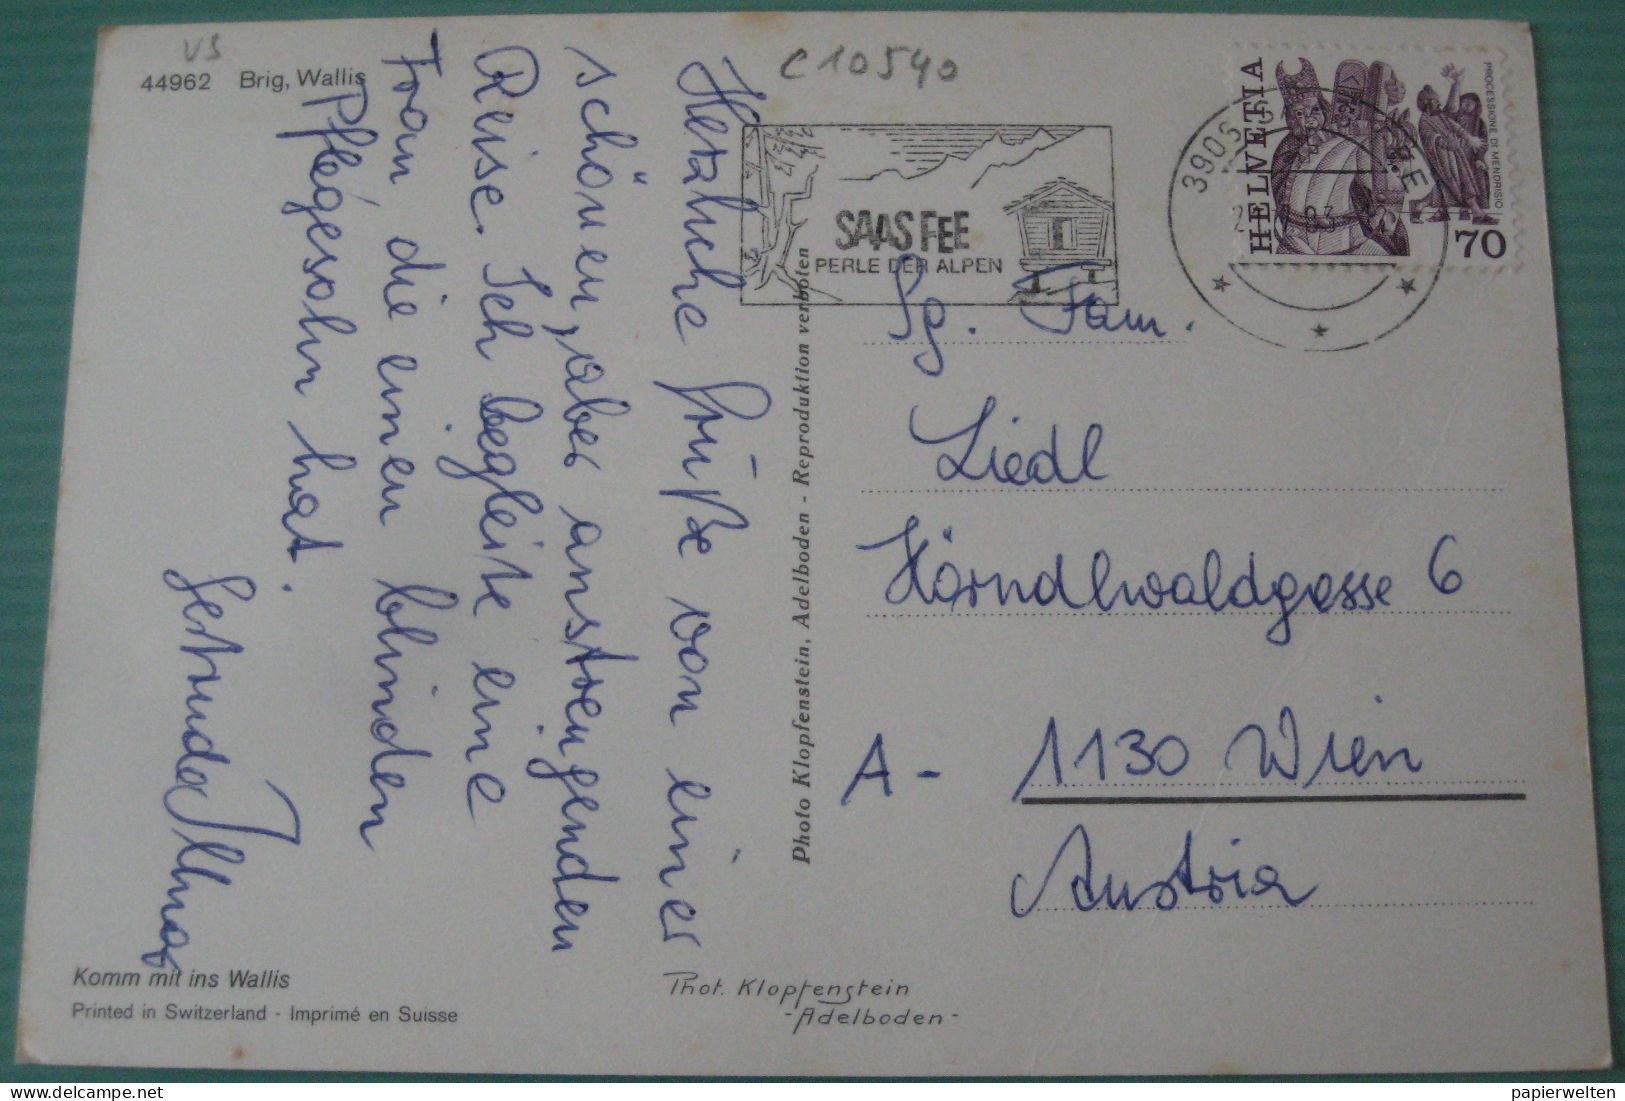 VS
44962 Brig, Wallis
C10540
Herzliche Grüße von einer
schönen, aber anstrengenden
Reise. Ich begleite eine
Frau, die einen blinden
Pflegesohn hat.
Gertrude
Komm mit ins Wallis
Printed in Switzerland - Imprimé en Suisse
Photo Klopfenstein, Adelboden - Reproduktion verboten
Phot. Klopfenstein
- Adelboden -
SAAS FEE
PERLE DER ALPEN
3906
HELVETIA
PROCESSIONE DI MENDRISIO
70
Sg. Fam.
Liedl
Hörndlwaldgasse 6
A - 1130 Wien
Austria
papierwelten